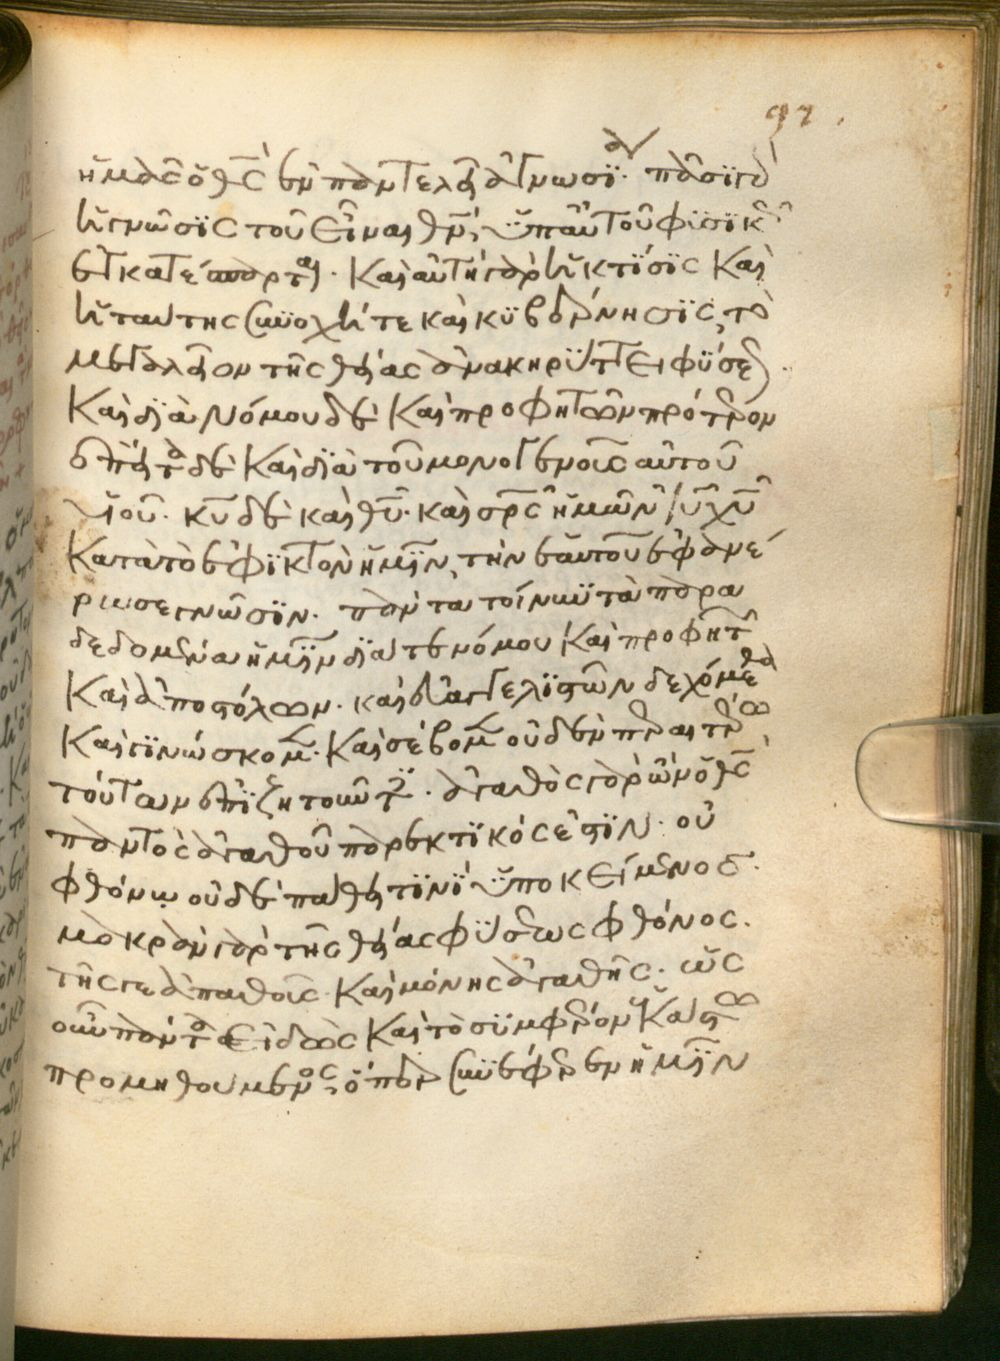 97.
ἡμᾶς ὁ θς ἐν παντελεῖ ἀγνωσία· πᾶσι γὰρ
ἡ γνῶσις τοῦ εἶναι θν, ὑπ αὐτοῦ φυσικῶς
ἐγκατέσπαρται. Καὶ αὐτὴ γὰρ ἡ κτίσις καὶ
ἡ ταύτης συνοχή τε καὶ κυβέρνησις, τὸ
μεγαλεῖον τῆς θείας ἀνακηρύττει φύσεως.
Καὶ διὰ νόμου δὲ καὶ προφητῶν πρότερον
ἔπειτα δὲ καὶ διὰ τοῦ μονογενοῦς αὐτοῦ
υἱοῦ. κυ δὲ καὶ θυ. καὶ σρς ἡμῶν ιυ χυ
κατὰ τὸ ἐφικτὸν ἡμῖν, τὴν ἑαυτοῦ ἐφανέ
ρωσε γνῶσιν. πάντα τοίνυν τὰ παρα
δεδομένα ἡμῖν διά τε νόμου καὶ προφητῶν
καὶ ἀποστόλων. καὶ εὐαγγελιστῶν δεχόμεθα
καὶ γινώσκομεν. καὶ σέβομεν οὐδὲν περαιτέρω
τούτων ἐπιζητοῦντες. ἀγαθὸς γὰρ ὢν ὁ θς
παντὸς ἀγαθοῦ παρεκτικός ἐστιν. οὐ
φθόνῳ οὐδὲ πάθει τινὶ ὑποκείμενος.
μακρὰν γὰρ τῆς θείας φύσεως φθόνος.
τῆς γε ἀπαθοῦς καὶ μόνης ἀγαθῆς. ὡς
οὖν πάντα εἰδὼς καὶ τὸ συμφέρον ἑκάστω
προμηθούμενος, ὅπερ συνέφερεν ἡμῖν